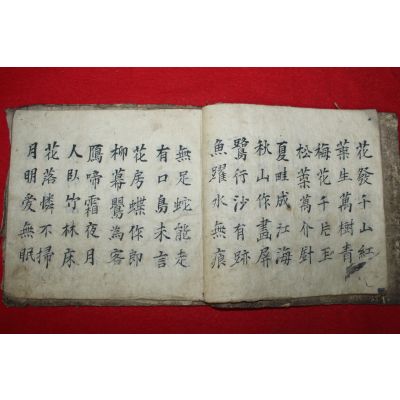 花發千山紅
葉生萬樹青
梅花千片玉
松葉萬介針
夏畦成江海
秋山作畵屏
鷺行沙有跡
魚躍水無痕
無足蛇能走
有口鳥未言
花房蝶作卽
柳幕鸎為客
鴈啼霜夜月
人臥竹林床
花落憐不掃
月明愛無眠